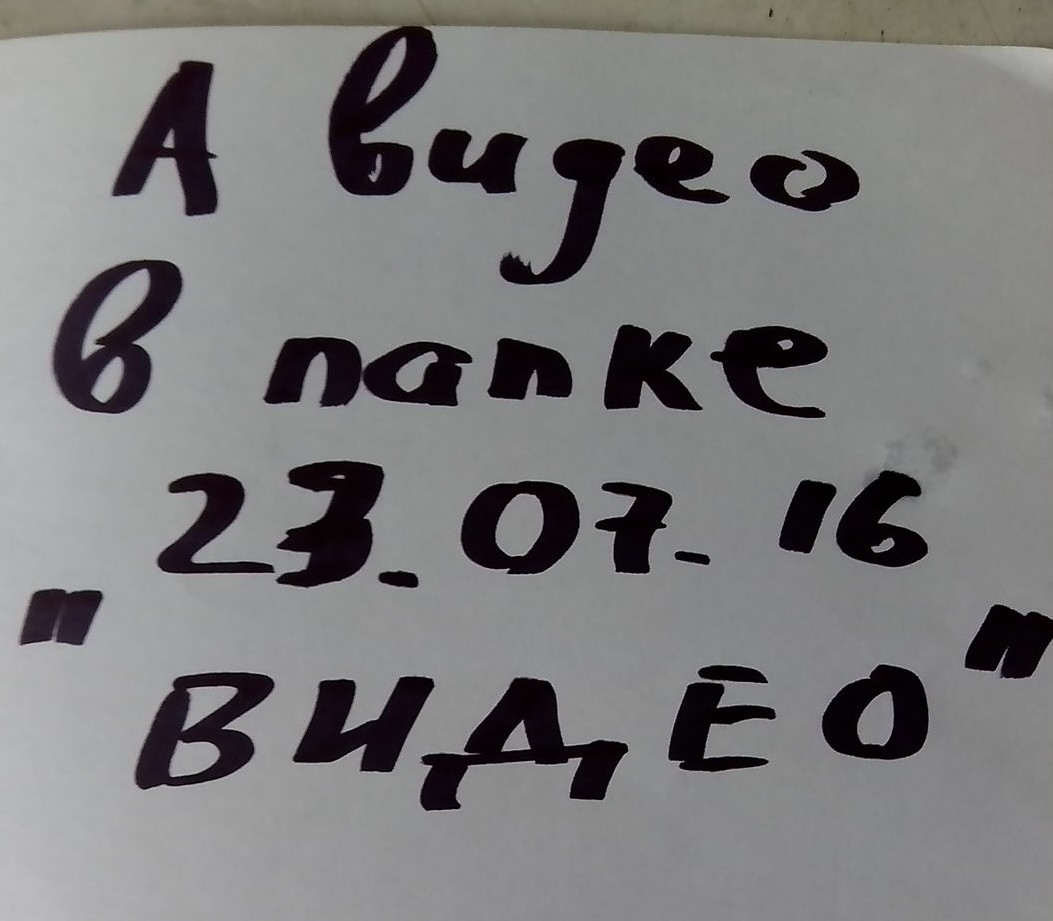 А видео
в папке
23.07.16
"ВИДЕО"